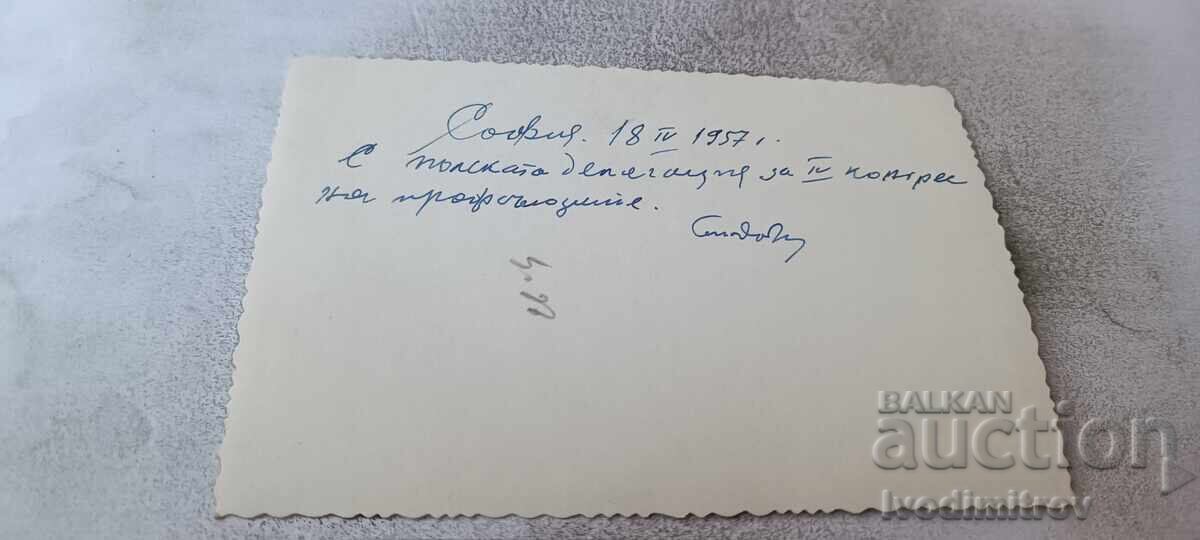 София. 18 IV 1957 г.
С полската делегация за IV конгрес
на профсъюзите.
BALKAN
auction
Ivodimitrov